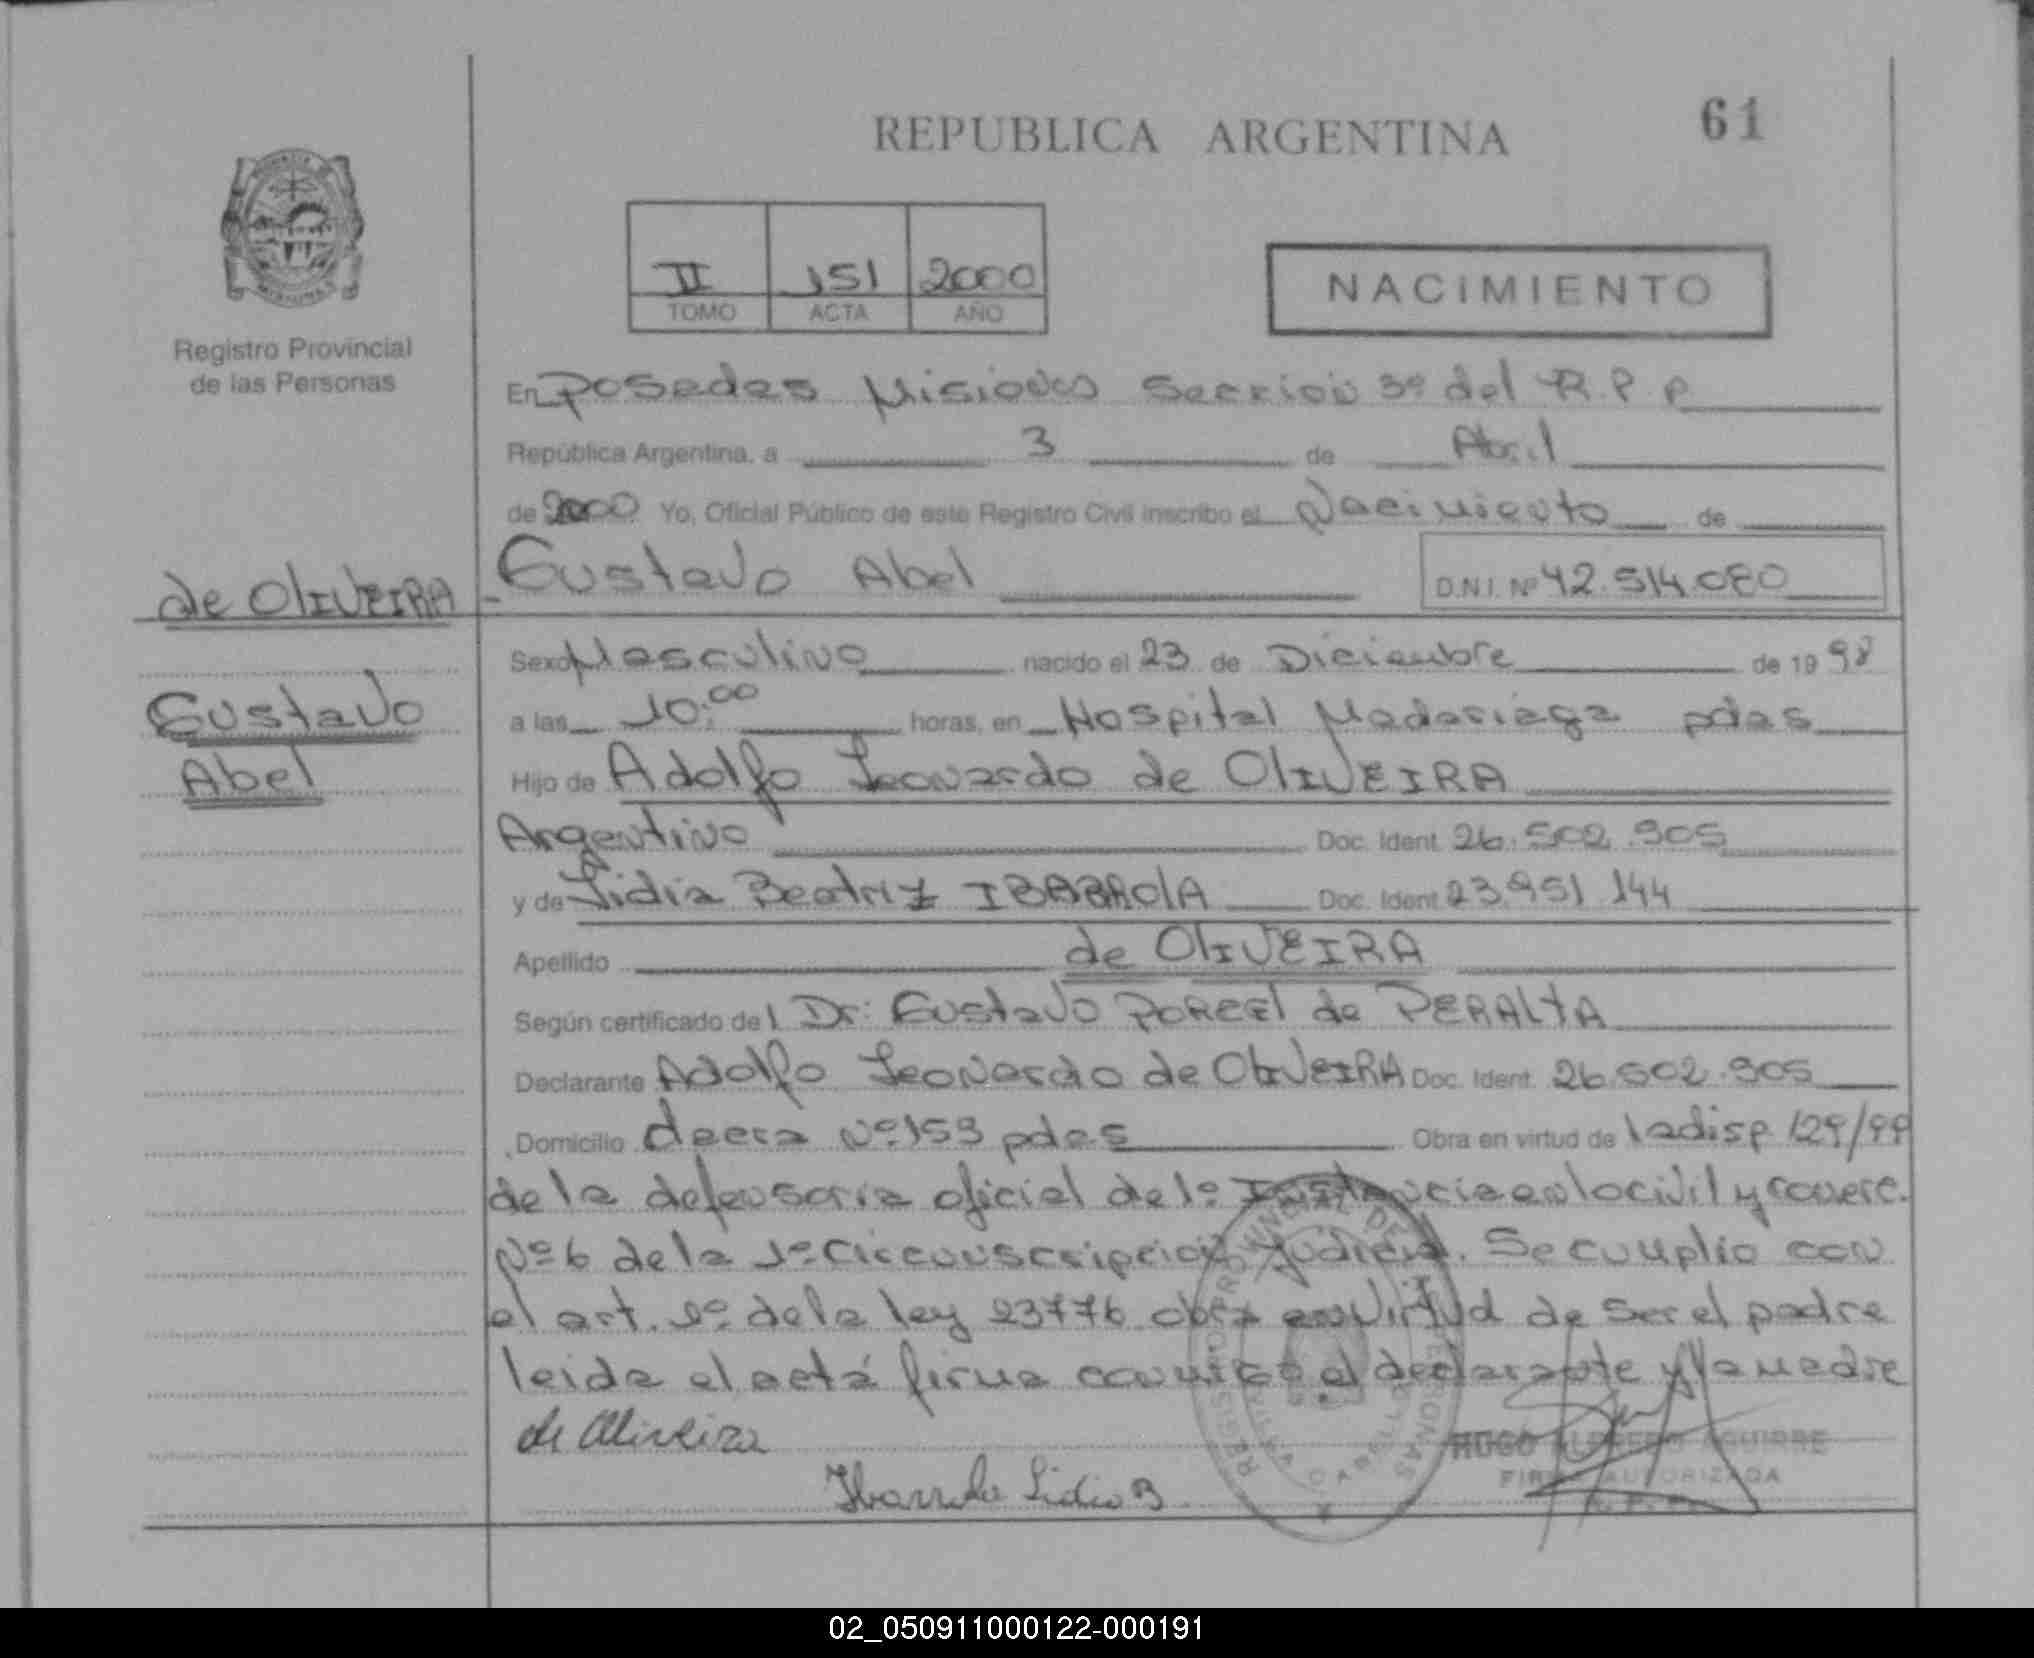 61
REPUBLICA ARGENTINA
II 151 2000
TOMO ACTA AÑO
NACIMIENTO
Registro Provincial
de las Personas
En Posadas Misiones Sección 3º del R.P.P
República Argentina, a 3 de Abril
de 2000 Yo, Oficial Público de este Registro Civil inscribo el Nacimiento de
de OLIVEIRA
Gustavo Abel
Gustavo Abel D.N.I. Nº 42.514.080
Sexo Masculino nacido el 23 de Diciembre de 19 98
a las 10:00 horas, en Hospital Madariaga pdas
Hijo de Adolfo Leonardo de OLIVEIRA
Argentino Doc. Ident. 26.502.905
y de Lidia Beatriz IBARROLA Doc. Ident. 23.951 144
Apellido de OLIVEIRA
Según certificado del Dr: Gustavo PORCEL de PERALTA
Declarante Adolfo Leonardo de OLIVEIRA Doc. Ident. 26.502.905
Domicilio chacra Nº 159 pdas Obra en virtud de la disp 129/99
de la defensoria oficial de 1º Instancia en lo civil y comerc.
Nº 6 de la 1º circunscripción Judicial. Se cumplio con
el art. 1º de la ley 23776 obra en virtud de ser el padre
leida el acta firma conmigo el declarante y la madre
de Oliveira
Ibarrola Lidia B
REGISTRO PROVINCIAL DE LAS PERSONAS
HUGO ALFREDO AGUIRRE
FIRMA AUTORIZADA
02_050911000122-000191